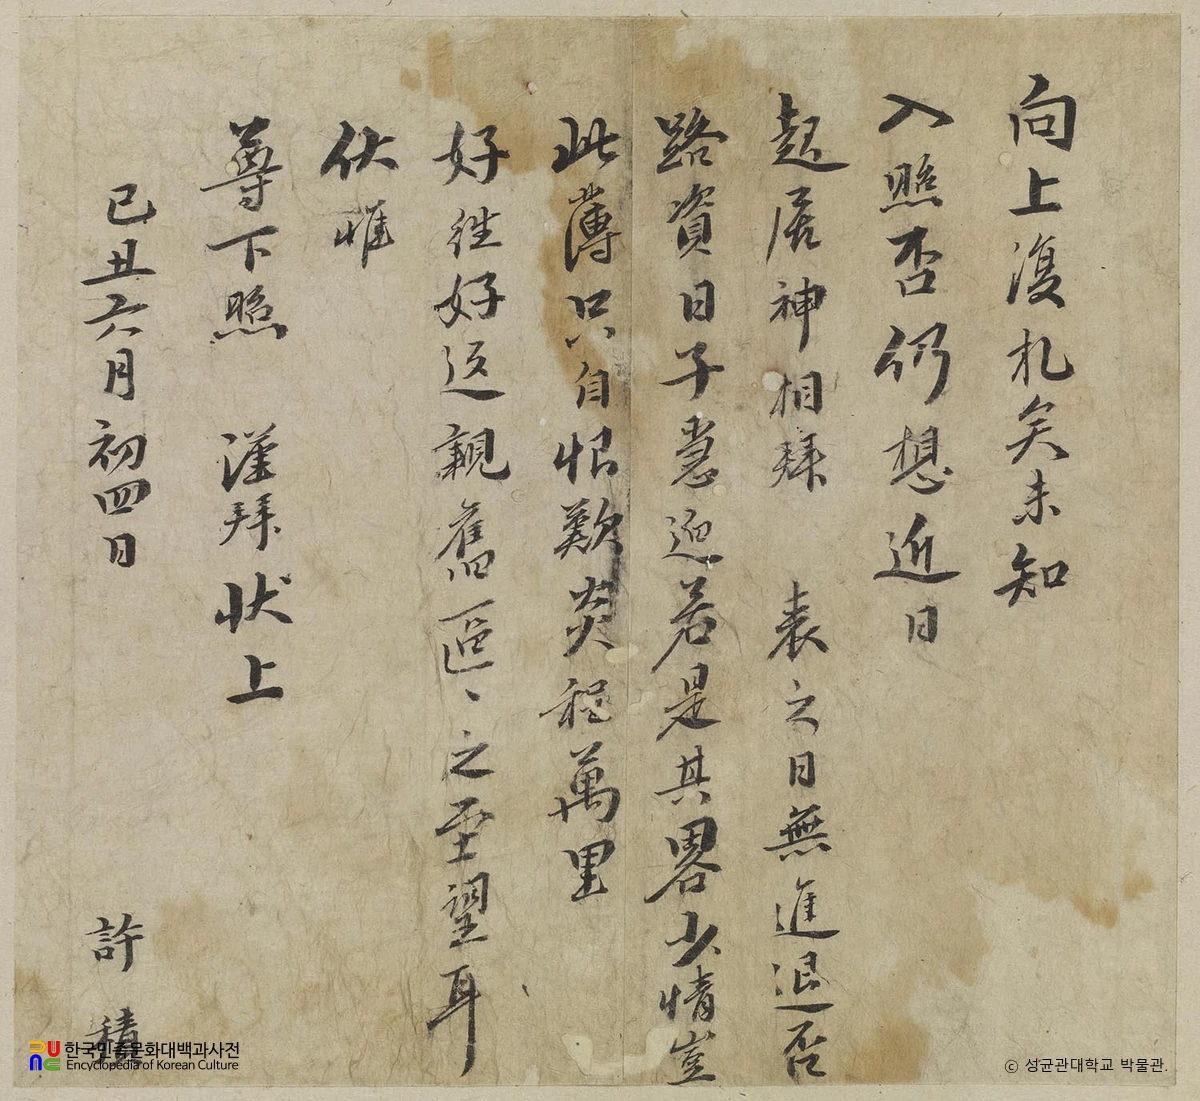 向上復札矣未知
入照否仍想近日
起居神相拜 表之日無進退否
路資日子忽迫若是其畧少情豈
此薄只自恨歎炎程萬里
好往好返親舊區〻之至望耳
伏惟
尊下照 謹拜狀上
己丑六月初四日
許積
한국민족문화대백과사전
Encyclopedia of Korean Culture
ⓒ 성균관대학교 박물관.